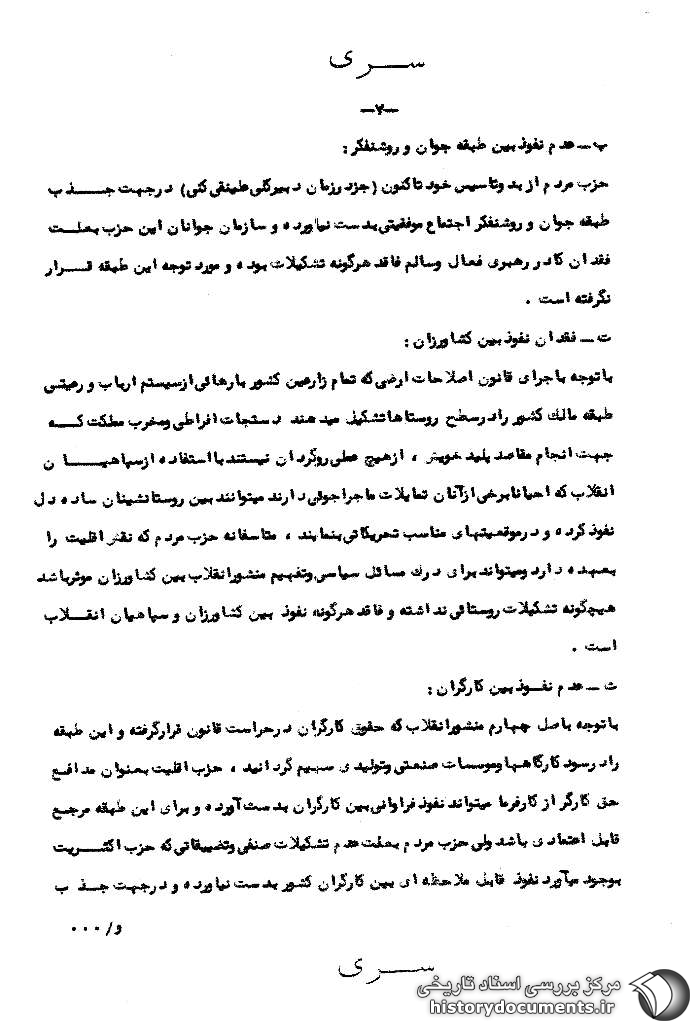 سری
-۷-
پ - عدم نفوذ بین طبقه جوان و روشنفکر :
حزب مردم از بدو تاسیس خود تاکنون (جزد رزمان دبیرکلی علینقی کنی) درجهت جذب
طبقه جوان و روشنفکر اجتماع موفقیتی بدست نیاورده و سازمان جوانان این حزب بعلت
فقدان کادر رهبری فعال وسالم فاقد هرگونه تشکیلات بوده و مورد توجه این طبقه قرار
نگرفته است .
ت - فقدان نفوذ بین کشاورزان :
باتوجه باجرای قانون اصلاحات ارضی که تمام زارعین کشور بارهائی ازسیستم ارباب و رعیتی
طبقه مالک کشور رادرسطح روستاها تشکیل میدهند دستجات افراطی ومخرب مملکت که
جهت انجام مقاصد پلید خویش ، ازهیچ عملی روگردان نیستند بااستفاده ازسپاهیان
انقلاب که احیانا برخی ازآنان تمایلات ماجراجوئی دارند میتوانند بین روستانشینان ساده دل
نفوذ کرده و درموقعیتهای مناسب تحریکاتی بنمایند ، متاسفانه حزب مردم که نقش اقلیت را
بعهده دارد ومیتواند برای درک مسائل سیاسی وتفهیم منشورانقلاب بین کشاورزان موثرباشد
هیچگونه تشکیلات روستائی نداشته و فاقد هرگونه نفوذ بین کشاورزان و سپاهیان انقلاب
است .
ث - عدم نفوذ بین کارگران :
باتوجه باصل چهارم منشورانقلاب که حقوق کارگران درحراست قانون قرارگرفته و این طبقه
رادرسود کارگاهها وموسسات صنعتی وتولیدی سهیم گردانید ، حزب اقلیت بعنوان مدافع
حق کارگر از کارفرما میتواند نفوذ فراوانی بین کارگران بدست آورده و برای این طبقه مرجع
قابل اعتمادی باشد ولی حزب مردم بعلت عدم تشکیلات صنفی وتضییقاتی که حزب اکثریت
بوجود میآورد نفوذ قابل ملاحظه ای بین کارگران کشور بدست نیاورده و درجهت جذب
و/ ۰۰۰
سری
مرکز بررسی اسناد تاریخی
historydocuments.ir